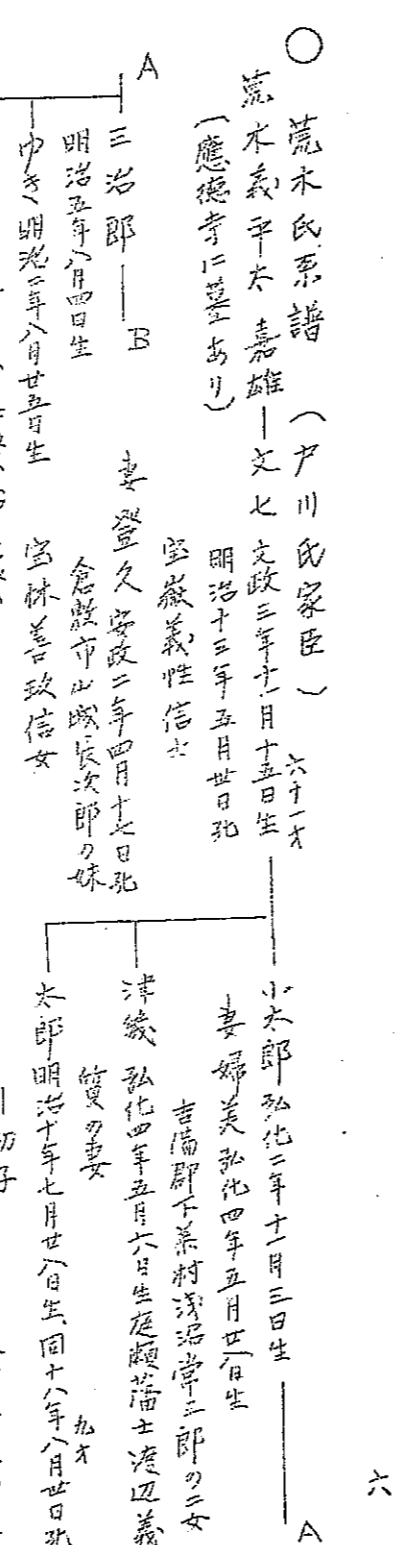 六
○ 荒木氏系譜 (戸川氏家臣)
荒木義平太 嘉雄 ― 文七 文政三年十一月十五日生 六十一才
(應徳寺に墓あり)
明治十三年五月廿日死
宝嶽義性信士
妻 登久 安政二年四月十七日死
倉敷市山城辰次郎の妹
宝林善玖信女
小太郎 弘化二年十一月三日生 A
妻 婦美 弘化四年五月廿八日生
吉備郡下菜村浅沼常三郎の二女
津幾 弘化四年五月六日生庭瀬藩士渡辺義
質の妻
太郎 明治十年七月廿八日生、同十八年八月廿日死 九才
A
三治郎 ― B
明治五年八月四日生
ゆき 明治二年八月廿五日生